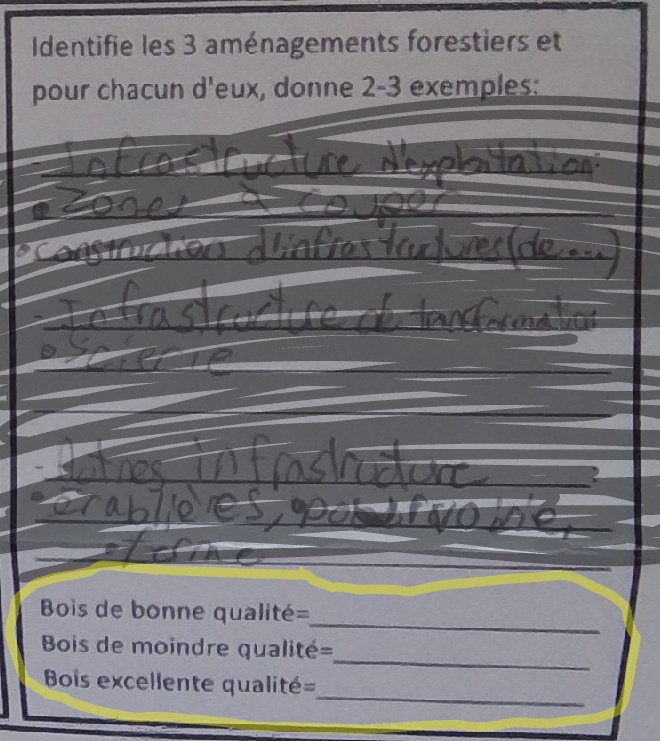 Identifie les 3 aménagements forestiers et
pour chacun d'eux, donne 2-3 exemples:
- Infrastructure d'exploitation:
• Zones à couper
• construction d'infrastructures (de...)
- Infrastructure de transformation
• Scierie
- Autres infrastructure :
• érablières,
Bois de bonne qualité=
Bois de moindre qualité=
Bois excellente qualité=